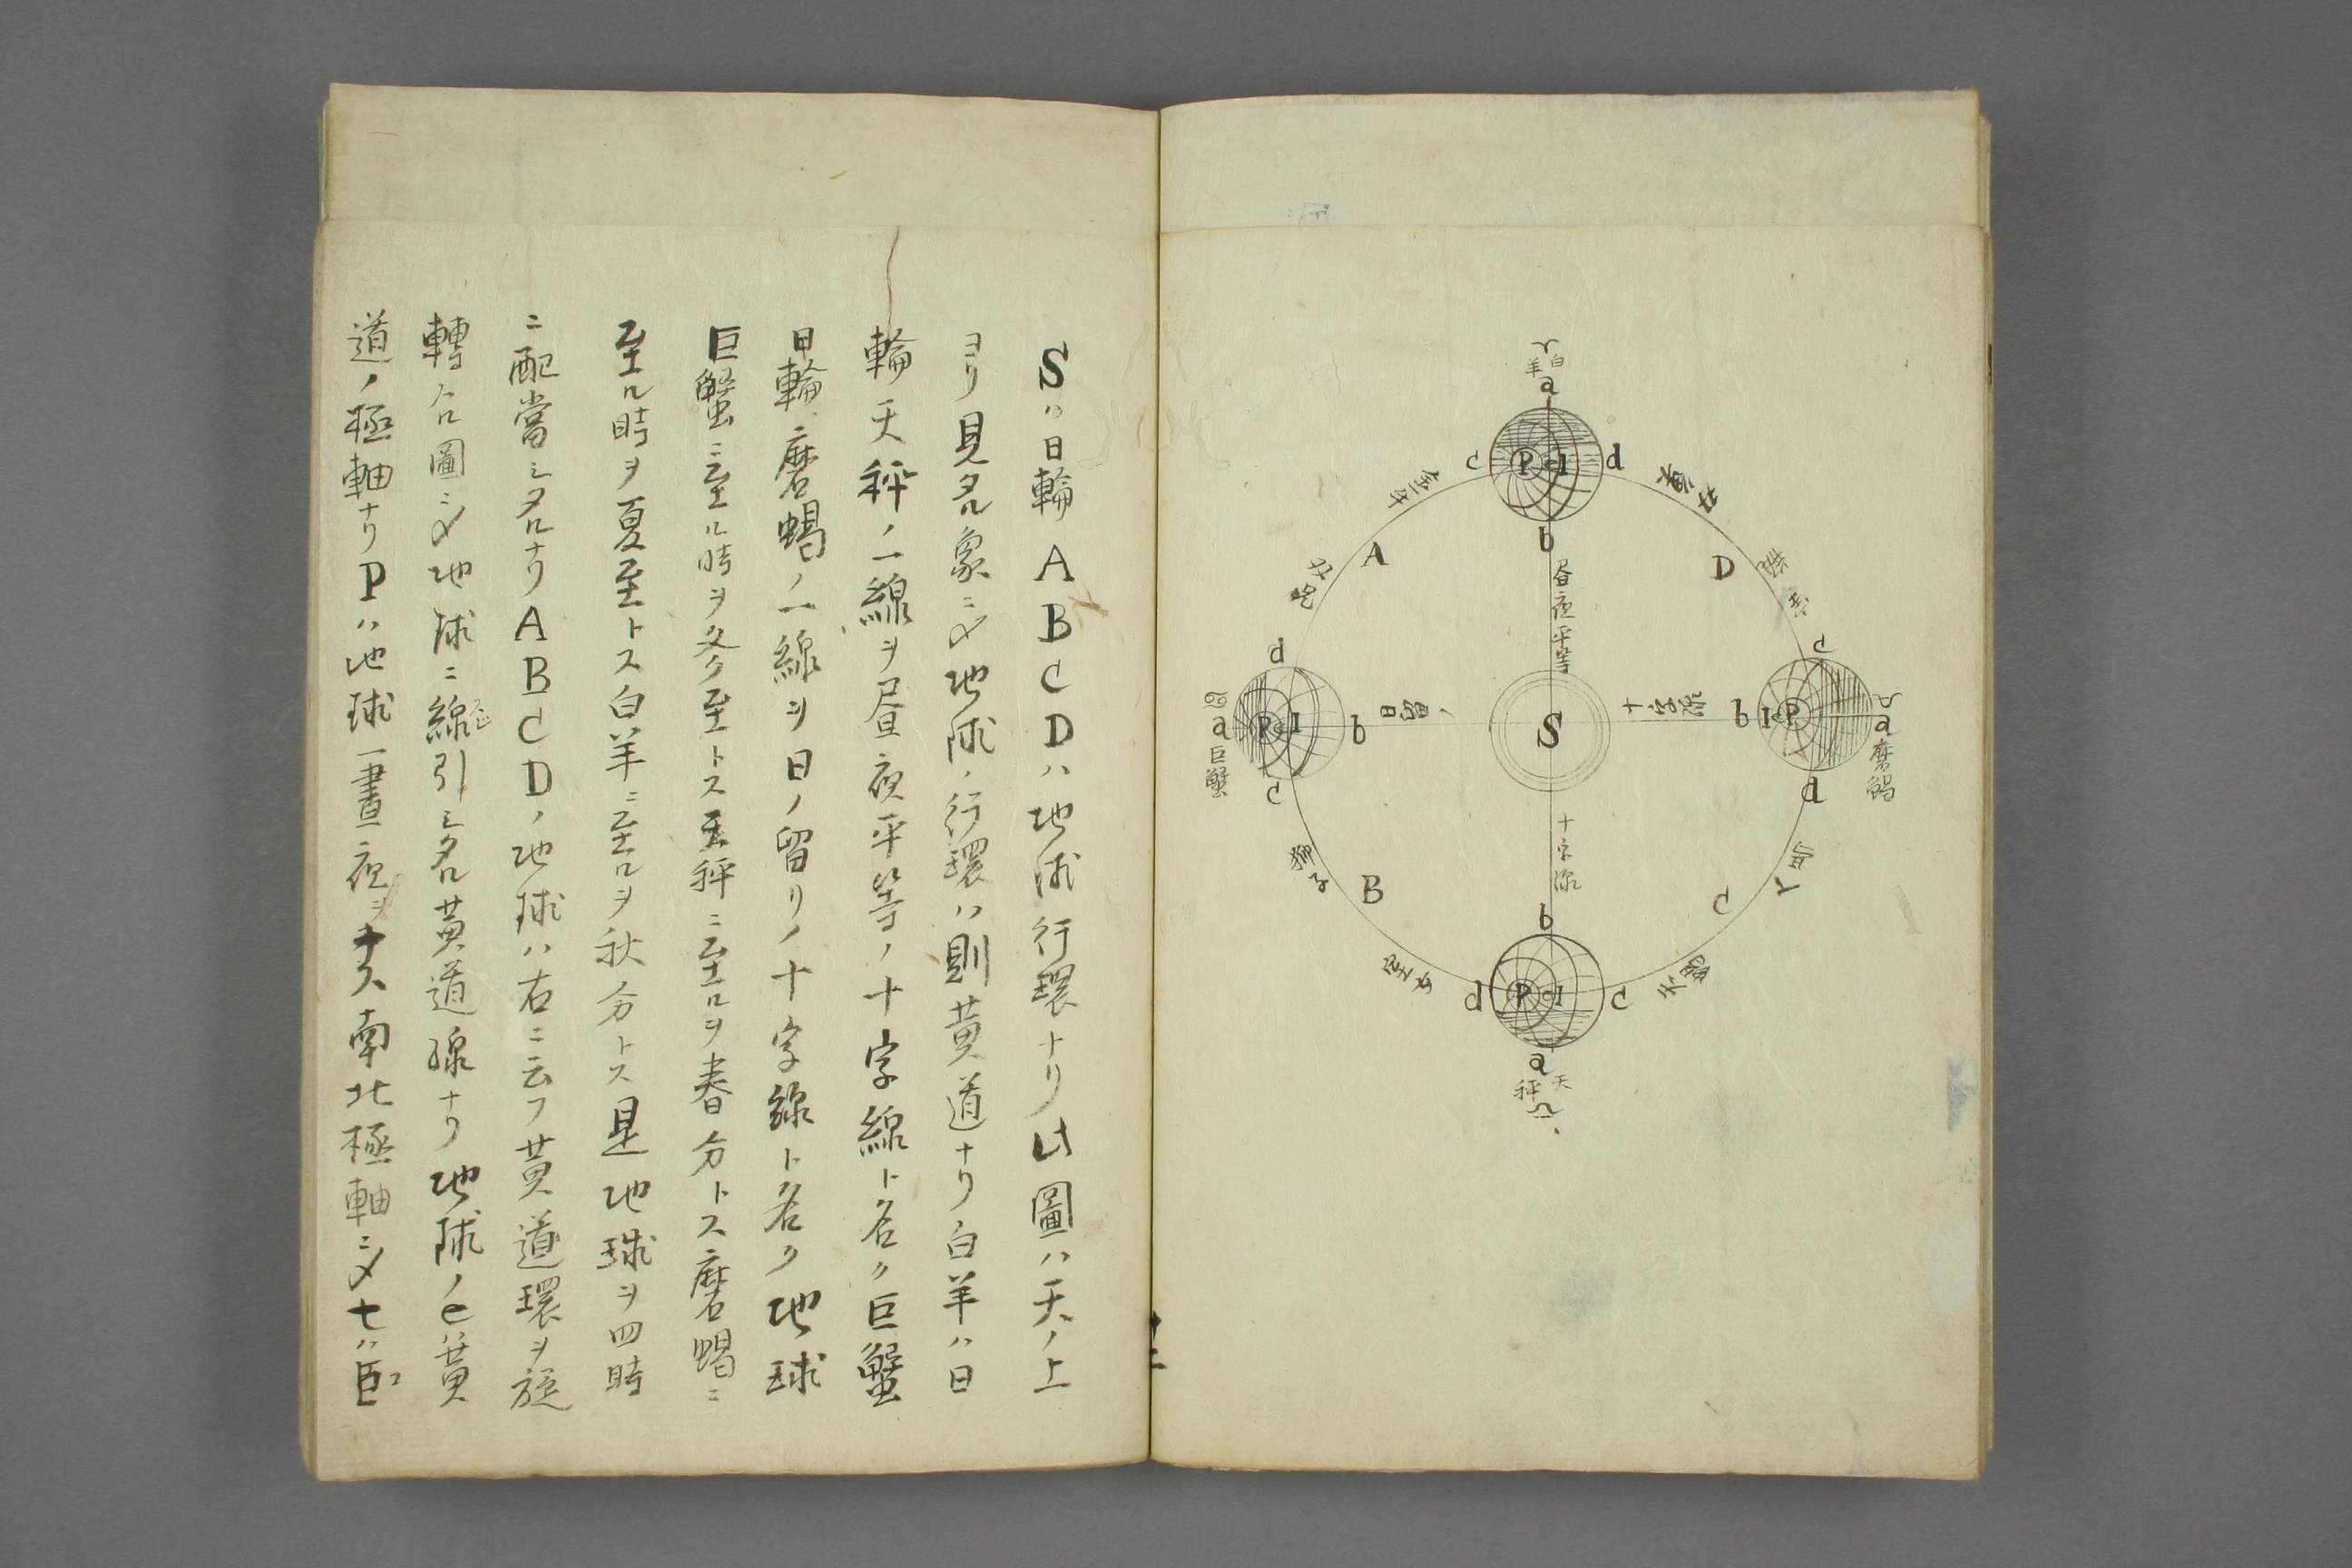 白羊
a
c
P
e
l
d
b
双魚
D
c
b
l
e
P
a
磨蝎
d
人馬
C
天蝎
b
d
P
e
l
c
a
天秤
室女
B
獅子
d
a
巨蟹
P
e
l
b
c
A
金牛
昼夜平等
十字線
S
十字線
ノ留日
Sハ日輪ABCDハ地球行環ナリ此圖ハ天ノ上
ヨリ見タル象ニ〆地球ノ行環ハ則黄道ナリ白羊ハ日
輪天秤ノ一線ヲ昼夜平等ノ十字線ト名ク巨蟹
日輪磨蝎ノ一線ヲ日ノ留リノ十字線ト名ク地球
巨蟹ニ至ル時ヲ冬至トス天秤ニ至ルヲ春分トス磨蝎ニ
至ル時ヲ夏至トス白羊ニ至ルヲ秋分トス是地球ヲ四時
ニ配當シタルナリABCDノ地球ハ右ニ云フ黄道環ヲ旋
轉スル圖ニ〆地球ニ線引シタル黄道線ナリ地球ノeハ黄
道ノ極軸ナリPハ地球一晝夜ヲナス南北極軸ニ〆七ハ臣